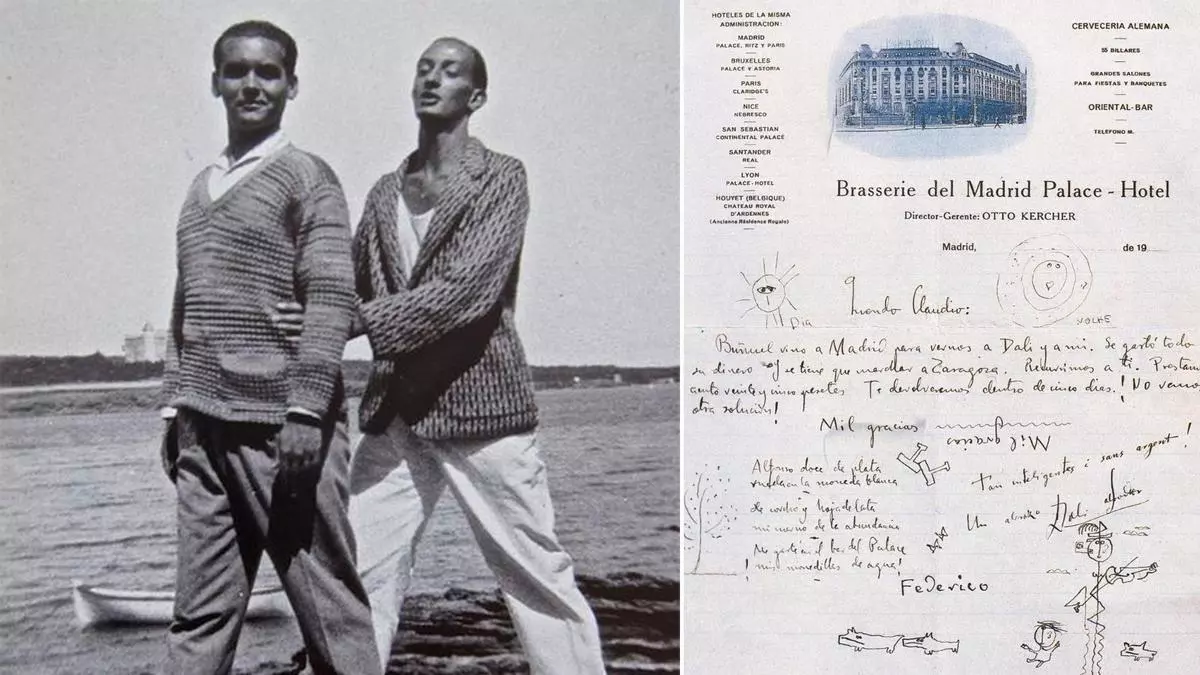 HOTELES DE LA MISMA
ADMINISTRACION:
MADRID
PALACE, RITZ Y PARIS
BRUXELLES
PALACE Y ASTORIA
PARIS
CLARIDGE'S
NICE
NEGRESCO
SAN SEBASTIAN
CONTINENTAL PALACE
SANTANDER
REAL
LYON
PALACE-HOTEL
HOUYET (BELGIQUE)
CHATEAU ROYAL
D'ARDENNES
(Ancienne Résidence Royale)
CERVECERIA ALEMANA
55 BILLARES
GRANDES SALONES
PARA FIESTAS Y BANQUETES
ORIENTAL-BAR
TELEFONO M.
Brasserie del Madrid Palace - Hotel
Director-Gerente: OTTO KERCHER
Madrid, de 19
Dia
Querido Claudio:
Buñuel vino a Madrid para vernos a Dali y a mi. Se gastó todo
su dinero y se tiene que marchar a Zaragoza. Recurrimos a ti.
ciento veinte y cinco pesetas Te devolveremos dentro de cinco dias. ! No vemos
otra solución!
Mil gracias
Mil gracias
Tan inteligentes i sans argent!
Alfonso doce de plata
en la moneda blanca
de corcho y hojadelata
mi de la abundancia
Me gasté en el bar del Palace
! mis monedillas de agua!
Un Dali
Federico